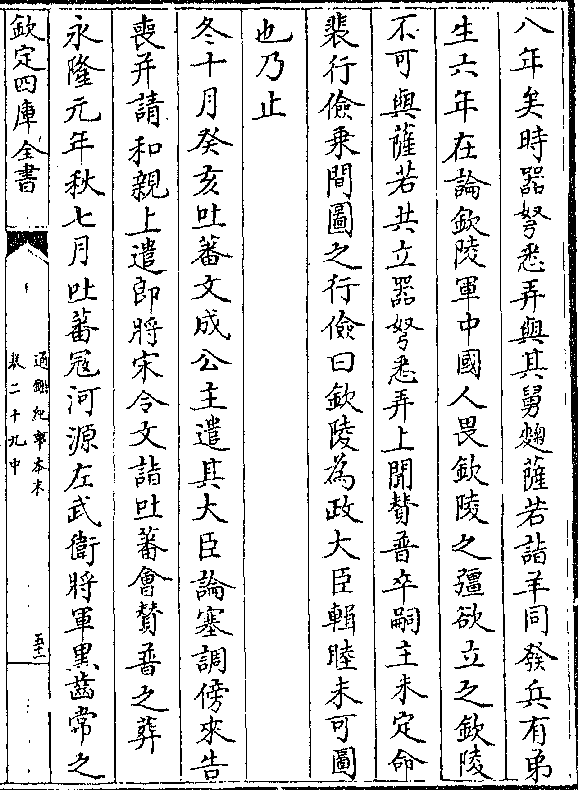 八年矣時器弩悉弄與其舅麹薩若詣羊同發兵有弟
生六年在論欽陵軍中國人畏欽陵之彊欲立之欽陵
不可與薩若共立器弩悉弄上聞賛普卒嗣主未定命
裴行儉乗間圖之行儉曰欽陵為政大臣輯睦未可圖
也乃止
冬十月癸亥吐蕃文成公主遣其大臣論塞調傍來告
喪并請和親上遣郎將宋令文詣吐蕃會賛普之葬
永隆元年秋七月吐蕃冦河源左武衛將軍黒齒常之
欽定四庫全書
通鑑紀事本末
卷二十九中
五十一